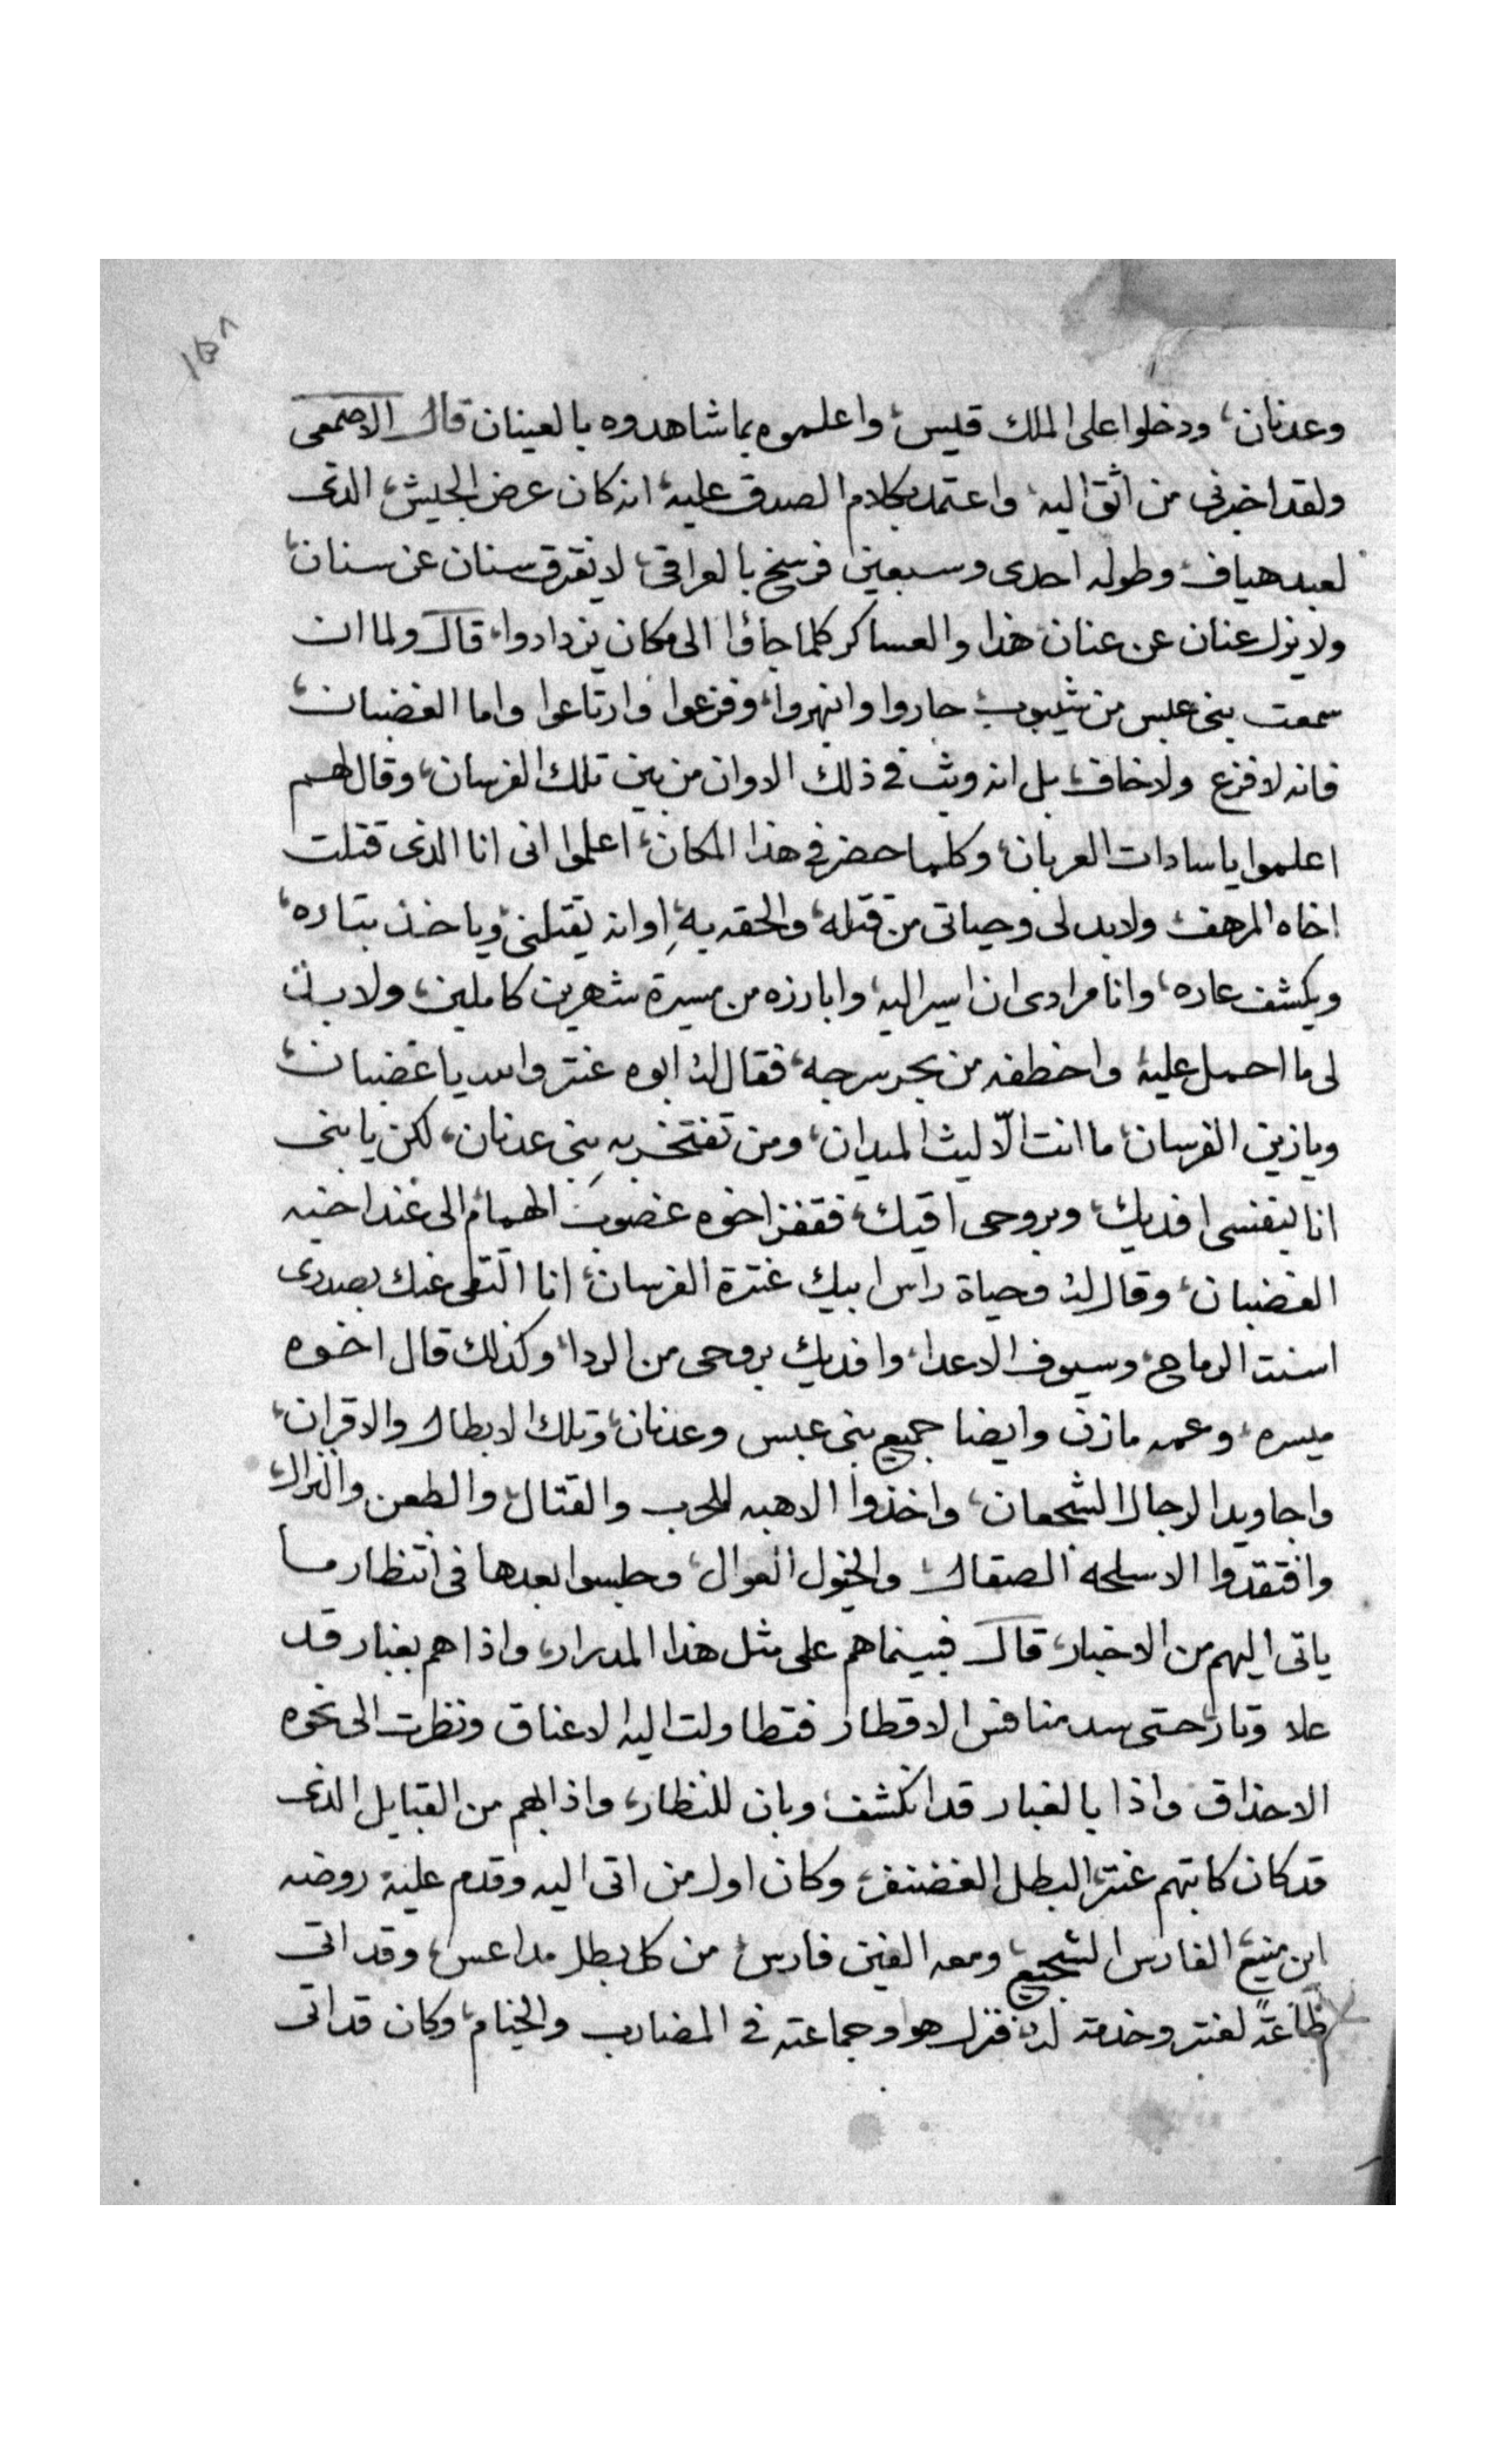 وعدنان، ودخلوا على الملك قيس، واعلموه بما شاهدوه بالعينان قال الاصمعى
ولقد اخبرنى من اثق اليه، واعتمد بكلام الصدق عليه، انه كان عرض الجيش، الذى
لعبد هياف، وطوله احدى وسبعين فرسخ بالعراقى، لا يفرق سنان عن سنان،
ولا يزل عنان عن عنان، هذا والعساكر كلما جاؤا الى مكان يزدادوا، قال ولما ان
سمعت بنى عبس من شيبوب، حاروا وانبهروا، وفزعوا وارتاعوا واما الغضبان،
فانه لا فزع ولا خاف، بل انه وثب فى ذلك الاوان من بين تلك الفرسان، وقال لهم
اعلموا يا سادات العربان، وكلما حضر فى هذا المكان، اعلموا انى انا الذى قتلت
اخاه المرهف، ولا بد لى وحياتى من قتله، والحقه به، او انه يقتلنى، وياخذ بتاره،
ويكشف عاره، وانا مرادى ان اسير اليه، وابارزه من مسيرة شهرين كاملين، ولا بد
لى ما احمل عليه، واخطفه من بحر سرجه، فقال له ابوه عنتر والله يا غضبان،
ويا زين الفرسان، ما انت الّا ليث الميدان، ومن تفتخر به بنى عدنان، لكن يا بنى
انا بنفسى افديك، وبروحى اقيك، فقفز اخوه غضوب الهمام، الى عند اخيه
الغضبان، وقال له وحياة راس ابيك عنترة الفرسان، انا التقى عنك بصدرى
اسنت الرماح، وسيوف الاعدا، وافديك بروحى من الردا، وكذلك قال اخوه
ميسره، وعمه مازن وايضا جميع بنى عبس وعدنان، وتلك الابطال والاقران،
واجاويد الرجال الشجعان، واخذوا الاهبه للحرب والقتال، والطعن والنزال،
وافتقدوا الاسلحه الصقال، والخيول العوال، وجلسوا بعدها فى انتظار ما
ياتى اليهم من الاخبار، قال فبينما هم على مثل هذا المدرار، واذا هم بغبار قد
علا وتار، حتى سد منافس الاقطار فتطاولت اليه الاعناق ونظرت الى نحوه
الاحداق واذا بالغبار قد انكشف، وبان للنظار، واذا بهم من القبايل الذى
قد كان كاتبهم عنتر، البطل الغضنفر، وكان اول من اتى اليه وقدم عليه، روضه
ابن منيع، الفارس الشجيع، ومعه الفين فارس، من كل بطل مداعس، وقد اتى
طاعتًه لعنتر وخدمة له، فنزل هو وجماعته فى المضارب والخيام، وكان قد اتى